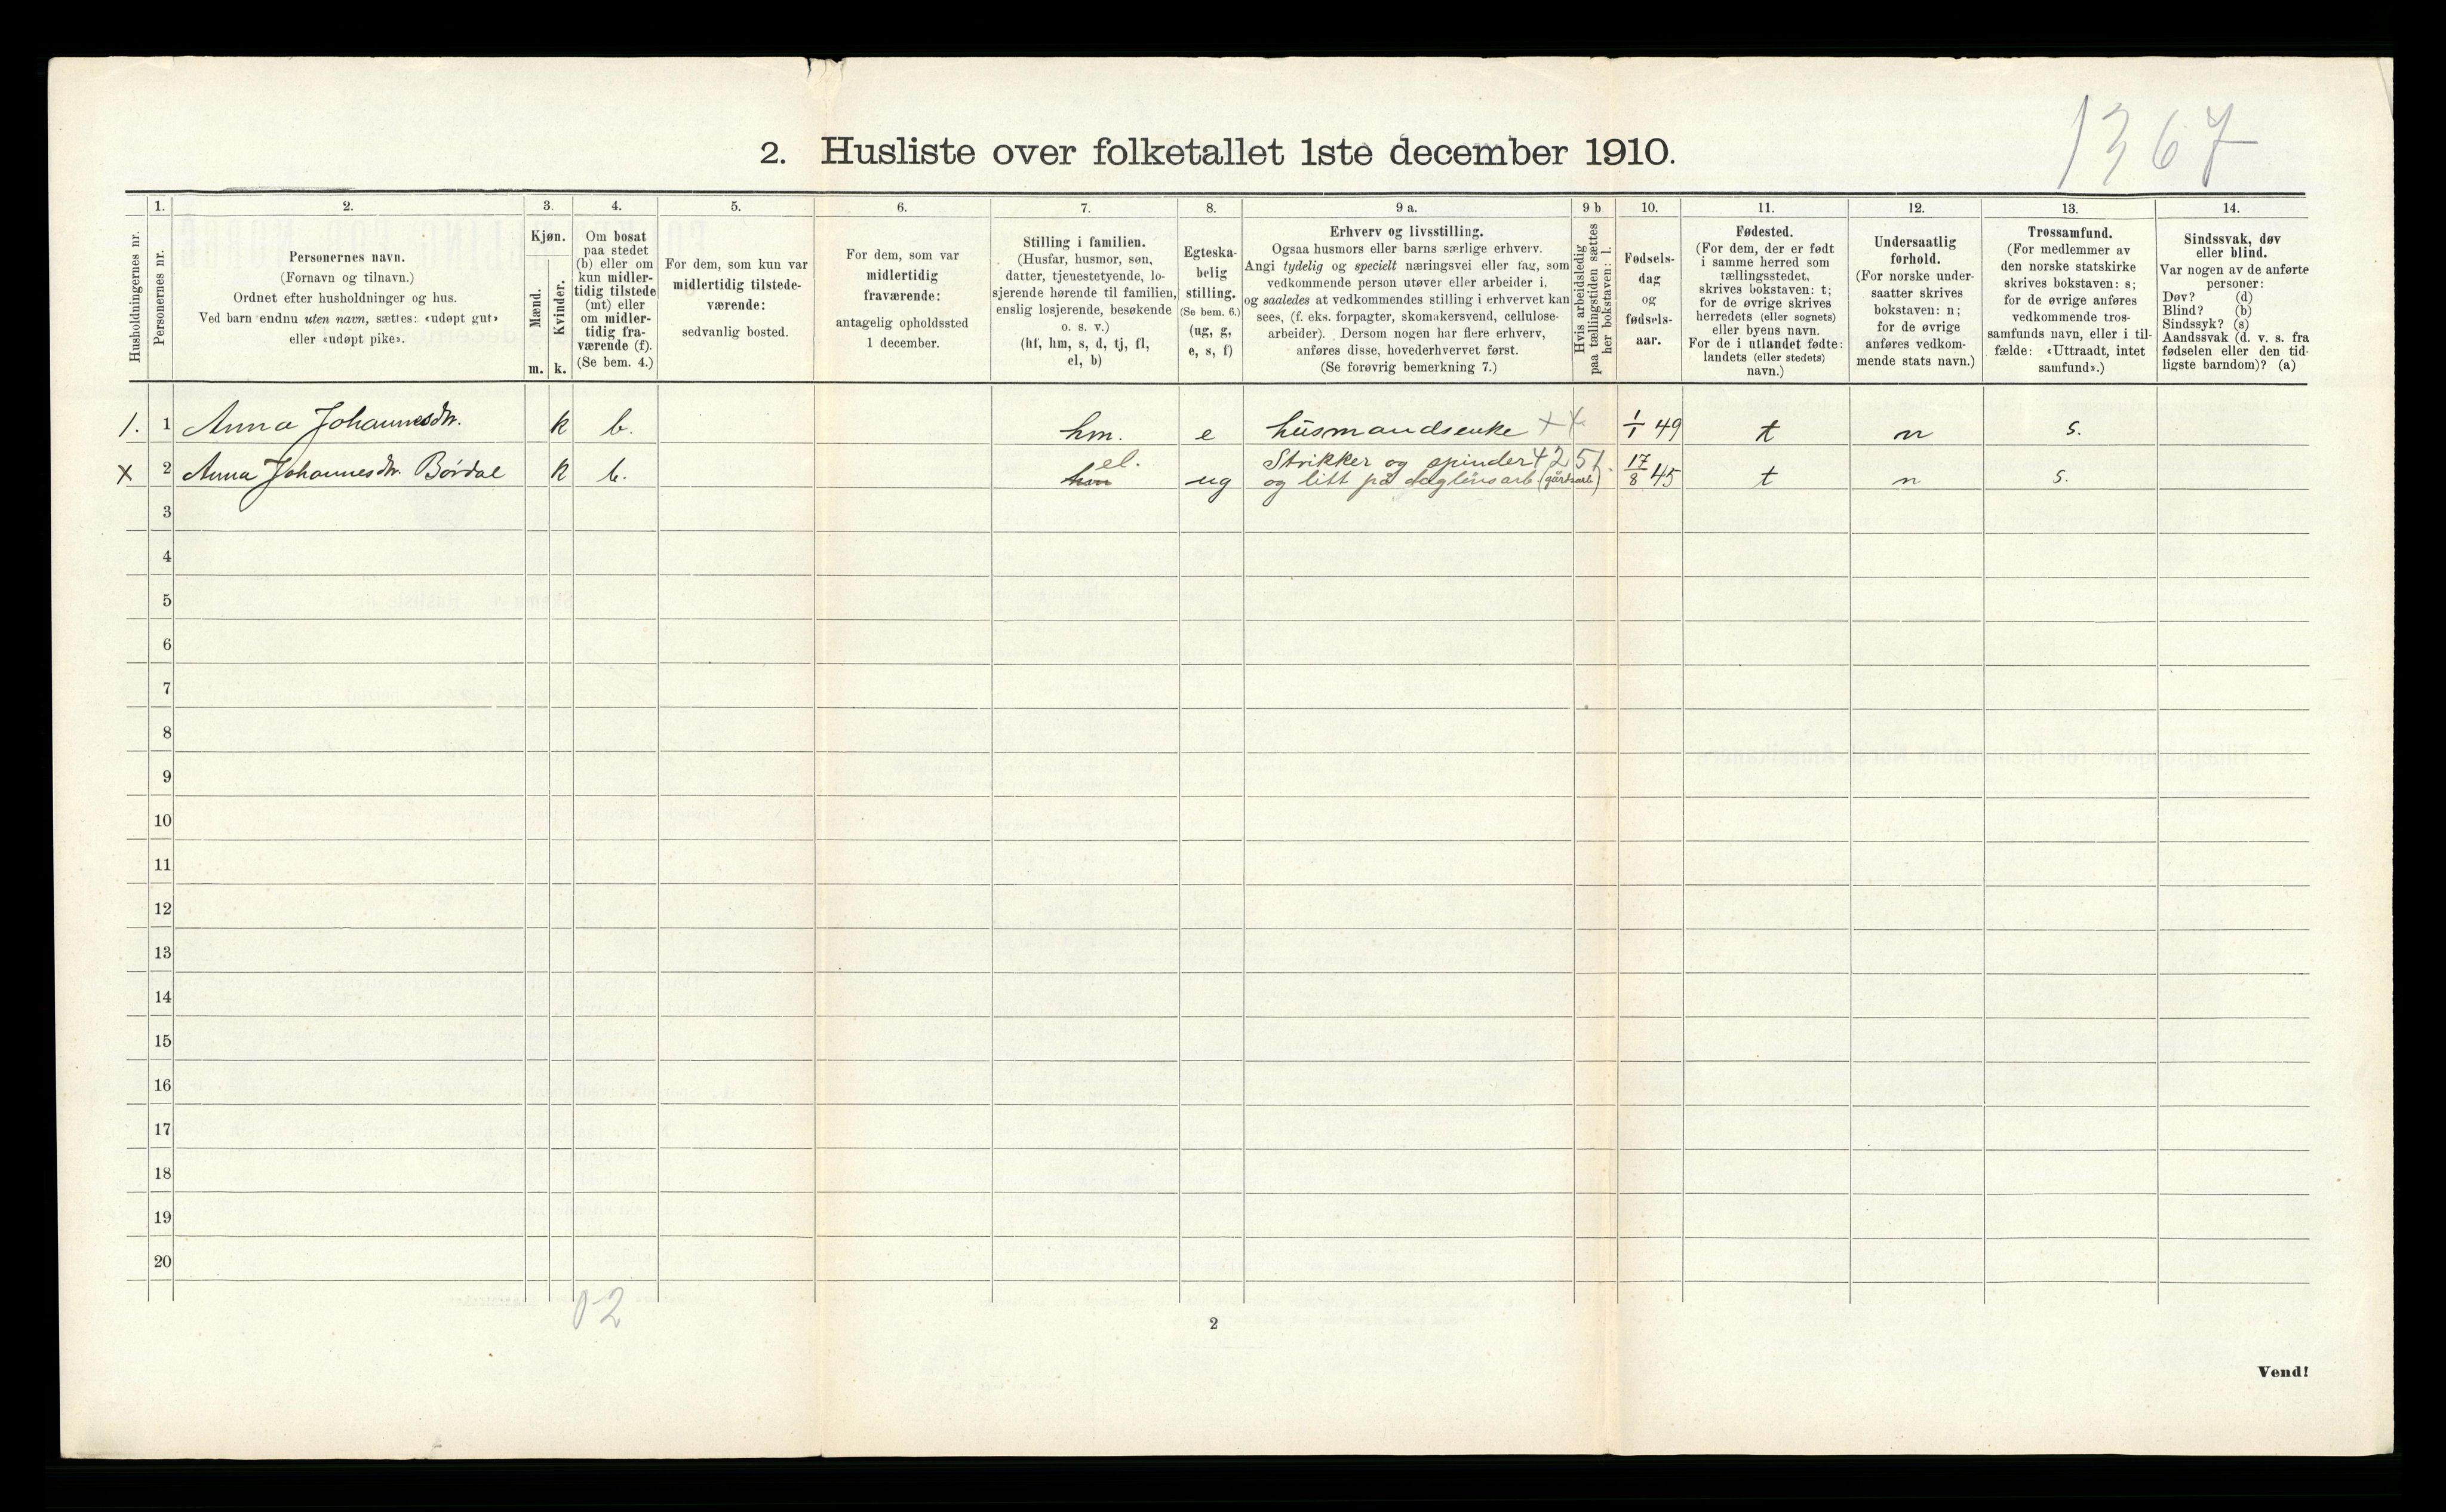 1367
2. Husliste over folketallet 1ste december 1910.
1. 2. 3. 4. 5. 6. 7. 8. 9 a. 9 b 10. 11. 12. 13. 14.
Husholdningernes nr.
Personernes nr.
Personernes navn.
(Fornavn og tilnavn.)
Ordnet efter husholdninger og hus.
Ved barn endnu uten navn, sættes: «udøpt gut»
eller «udøpt pike».
Kjøn.
Mænd.
Kvinder.
m. k.
Om bosat
paa stedet
(b) eller om
kun midler-
tidig tilstede
(mt) eller
om midler-
tidig fra-
værende (f).
(Se bem. 4.)
For dem, som kun var
midlertidig tilstede-
værende:
sedvanlig bosted.
For dem, som var
midlertidig
fraværende:
antagelig opholdssted
1 december.
Stilling i familien.
(Husfar, husmor, søn,
datter, tjenestetyende, lo-
sjerende hørende til familien,
enslig losjerende, besøkende
o. s. v.)
(hf, hm, s, d, tj, fl,
el, b)
Egteska-
belig
stilling.
(Se bem. 6.)
(ug, g,
e, s, f)
Erhverv og livsstilling.
Ogsaa husmors eller barns særlige erhverv.
Angi tydelig og specielt næringsvei eller fag, som
vedkommende person utøver eller arbeider i,
og saaledes at vedkommendes stilling i erhvervet kan
sees, (f. eks. forpagter, skomakersvend, cellulose-
arbeider). Dersom nogen har flere erhverv,
anføres disse, hovederhvervet først.
(Se forøvrig bemerkning 7.)
Hvis arbeidsledig
paa tællingstiden sættes
her bokstaven: l.
Fødsels-
dag
og
fødsels-
aar.
Fødested.
(For dem, der er født
i samme herred som
tællingsstedet,
skrives bokstaven: t;
for de øvrige skrives
herredets (eller sognets)
eller byens navn.
For de i utlandet fødte:
landets (eller stedets)
navn.)
Undersaatlig
forhold.
(For norske under-
saatter skrives
bokstaven: n;
for de øvrige
anføres vedkom-
mende stats navn.)
Trossamfund.
(For medlemmer av
den norske statskirke
skrives bokstaven: s;
for de øvrige anføres
vedkommende tros-
samfunds navn, eller i til-
fælde: «Uttraadt, intet
samfund».)
Sindssvak, døv
eller blind.
Var nogen av de anførte
personer:
Døv? (d)
Blind? (b)
Sindssyk? (s)
Aandssvak (d. v. s. fra
fødselen eller den tid-
ligste barndom)? (a)
1. 1 Anna Johannesdtr. k b. hm. e husmandsenke 1/1 49 t n s.
x 2 Anna Johannesdtr. Bórdal k b. el. ug Strikker og spinder 4251. 17/8 45 t n s.
og litt på daglönsarb. (gårdsarb)
3
4
5
6
7
8
9
10
11
12
13
14
15
16
17
18
19
20
02
2
Vend!